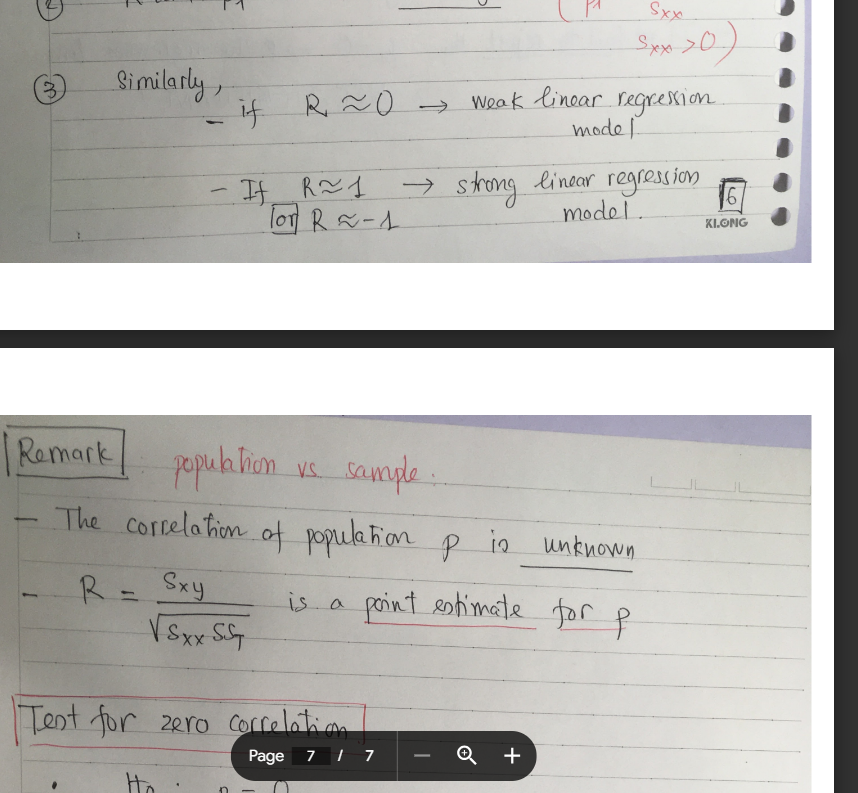 (2)
S_xx
S_xx > 0 )
(3) Similarly,
- if R ≈ 0 → weak linear regression
model
- If R ≈ 1 → strong linear regression
or R ≈ -1 model.
6
KLONG
Remark : population vs sample.
- The correlation of population ρ is unknown
- R = S_xy / √(S_xx SS_T) is a point estimate for ρ
Test for zero correlation
Page 7 / 7